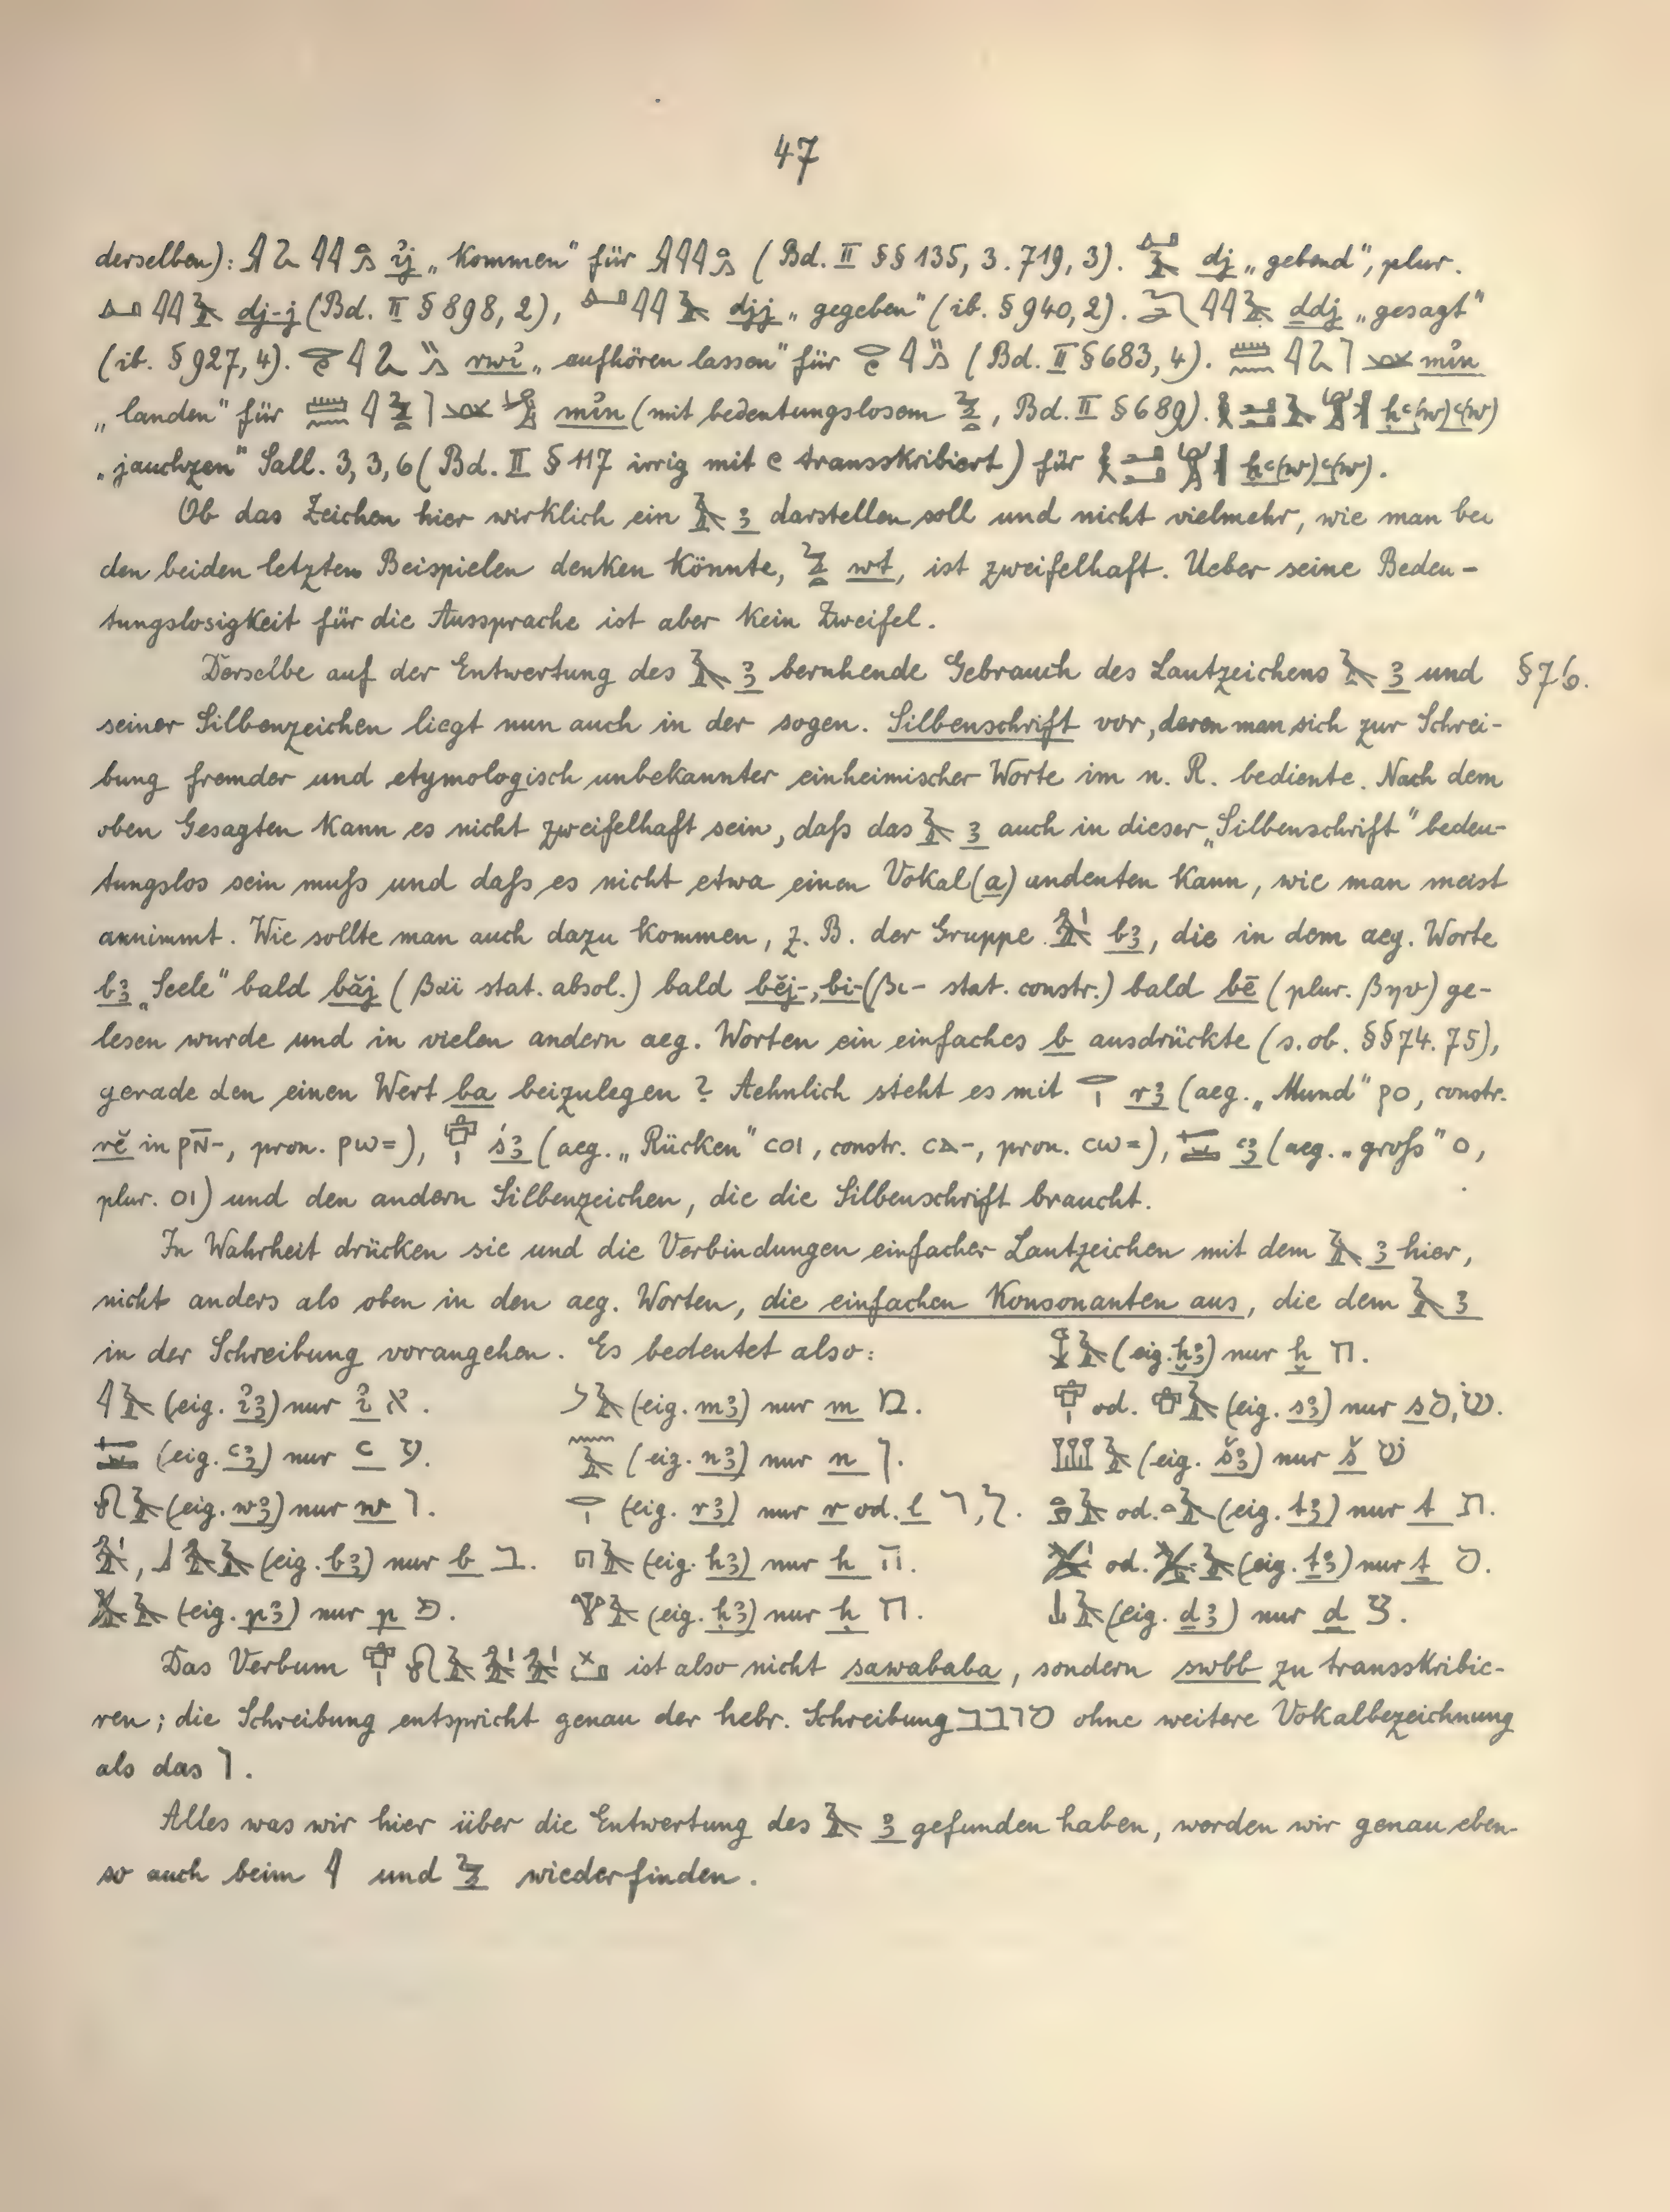 47
derselben): 𓇋𓅱𓇋𓇋𓂻 ı͗j „kommen“ für 𓇋𓇋𓇋𓂻 (Bd. II §§ 135, 3. 719, 3). dj „gebend“, plur.
dj-j (Bd. II § 898, 2), djj „gegeben“ (ib. § 940, 2). ḏdj „gesagt“
(ib. § 927, 4). rwı͗ „aufhören lassen“ für (Bd. II § 683, 4). mı͗n
„landen“ für mı͗n (mit bedeutungslosem , Bd. II § 689). ḥꜥ(w)ꜥ(w)
„jauchzen“ Sall. 3, 3, 6 (Bd. II § 117 irrig mit e transskribiert) für ḥꜥ(w)ꜥ(w).
Ob das Zeichen hier wirklich ein 𓄿 ꜣ darstellen soll und nicht vielmehr, wie man bei
den beiden letzten Beispielen denken könnte, wt, ist zweifelhaft. Ueber seine Bedeu-
tungslosigkeit für die Aussprache ist aber kein Zweifel.
Derselbe auf der Entwertung des 𓄿 ꜣ beruhende Gebrauch des Lautzeichens 𓄿 ꜣ und § 76.
seiner Silbenzeichen liegt nun auch in der sogen. Silbenschrift vor, deren man sich zur Schrei-
bung fremder und etymologisch unbekannter einheimischer Worte im n. R. bediente. Nach dem
oben Gesagten kann es nicht zweifelhaft sein, daß das 𓄿 ꜣ auch in dieser „Silbenschrift“ bedeu-
tungslos sein muß und daß es nicht etwa einen Vokal (a) andeuten kann, wie man meist
annimmt. Wie sollte man auch dazu kommen, z. B. der Gruppe 𓅡𓏤 bꜣ, die in dem aeg. Worte
bꜣ „Seele“ bald băj (βαϊ stat. absol.) bald bĕj-, bi- (βι- stat. constr.) bald bē (plur. βηυ) ge-
lesen wurde und in vielen andern aeg. Worten ein einfaches b ausdrückte (s. ob. §§ 74. 75),
gerade den einen Wert ba beizulegen? Aehnlich steht es mit 𓂋𓏤 rꜣ (aeg. „Mund“ ⲣⲟ, constr.
rĕ in ⲣⲛ̄-, pron. ⲣⲱ=), śꜣ (aeg. „Rücken“ ⲥⲟⲓ, constr. ⲥⲁ-, pron. ⲥⲱ=), ꜥꜣ (aeg. „groß“ ⲟ,
plur. ⲟⲓ) und den andern Silbenzeichen, die die Silbenschrift braucht.
In Wahrheit drücken sie und die Verbindungen einfacher Lautzeichen mit dem 𓄿 ꜣ hier,
nicht anders als oben in den aeg. Worten, die einfachen Konsonanten aus, die dem 𓄿 ꜣ
in der Schreibung vorangehen. Es bedeutet also: 𓆼𓄿 (eig. ḫꜣ) nur ḫ ח.
𓇋𓄿 (eig. ı͗ꜣ) nur ı͗ א. 𓐝𓄿 (eig. mꜣ) nur m מ. od. (eig. sꜣ) nur s ס, שׂ.
𓉻 (eig. ꜥꜣ) nur ꜥ ע. 𓈖𓄿 (eig. nꜣ) nur n נ. 𓆷𓄿 (eig. šꜣ) nur š שׁ
𓍯𓄿 (eig. wꜣ) nur w ו. 𓂋𓏤 (eig. rꜣ) nur r od. l ר, ל. od. (eig. tꜣ) nur t ת.
𓅡𓏤, 𓃀𓅡𓄿 (eig. bꜣ) nur b ב. 𓉔𓄿 (eig. hꜣ) nur h ה. 𓅷𓏤 od. 𓅷𓄿 (eig. ṯꜣ) nur ṯ ס.
𓅮𓄿 (eig. pꜣ) nur p פ. 𓇉𓄿 (eig. ḥꜣ) nur ḥ ח. 𓍑𓄿 (eig. ḏꜣ) nur ḏ צ.
Das Verbum ist also nicht sawababa, sondern swbb zu transskribie-
ren; die Schreibung entspricht genau der hebr. Schreibung סובב ohne weitere Vokalbezeichnung
als das ו.
Alles was wir hier über die Entwertung des 𓄿 ꜣ gefunden haben, werden wir genau eben-
so auch beim 𓇋 und 𓅱 wiederfinden.